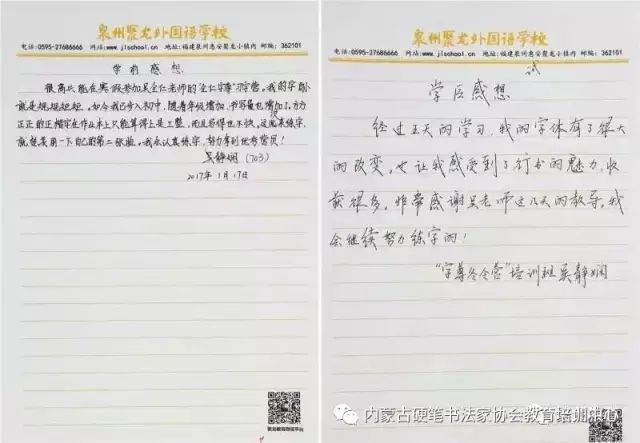 泉州聚龙外国语学校
电话:0595-27686666 网站:www.jlschool.cn 地址:福建泉州惠安聚龙小镇内 邮编:362101
学前感想
很高兴能在寒假参加吴全仁老师的
就是规规矩矩。如今我已步入初中,随着年级增加,书写量也增加了。方方
正正的正楷字在作业本上只能算得上是工整,而且写得也不快。
就想着用一下自己的第二张脸。我会认真练字,努力拿到优秀营员!
吴静娴(703)
2017年1月17日
聚龙教育微信平台
泉州聚龙外国语学校
电话:0595-27686666 网站:www.jlschool.cn 地址:福建泉州惠安聚龙小镇内 邮编:362101
试
学后感想
经过五天的学习,我的字体有了很大
的改变。也让我感受到了行书的魅力,收
获很多。非常感谢吴老师这几天的教导。我
会继续努力练字的!
“字尊冬令营”培训班吴静娴
内蒙古硬笔书法家协会教育培训中心